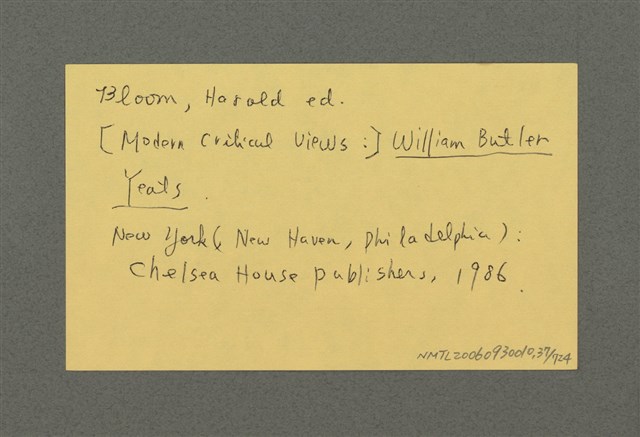 Bloom, Harold ed.
[Modern Critical Views :] William Butler
Yeats.
New York (, New Haven, Philadelphia) :
Chelsea House publishers, 1986.
NMTL20060930010,37/724